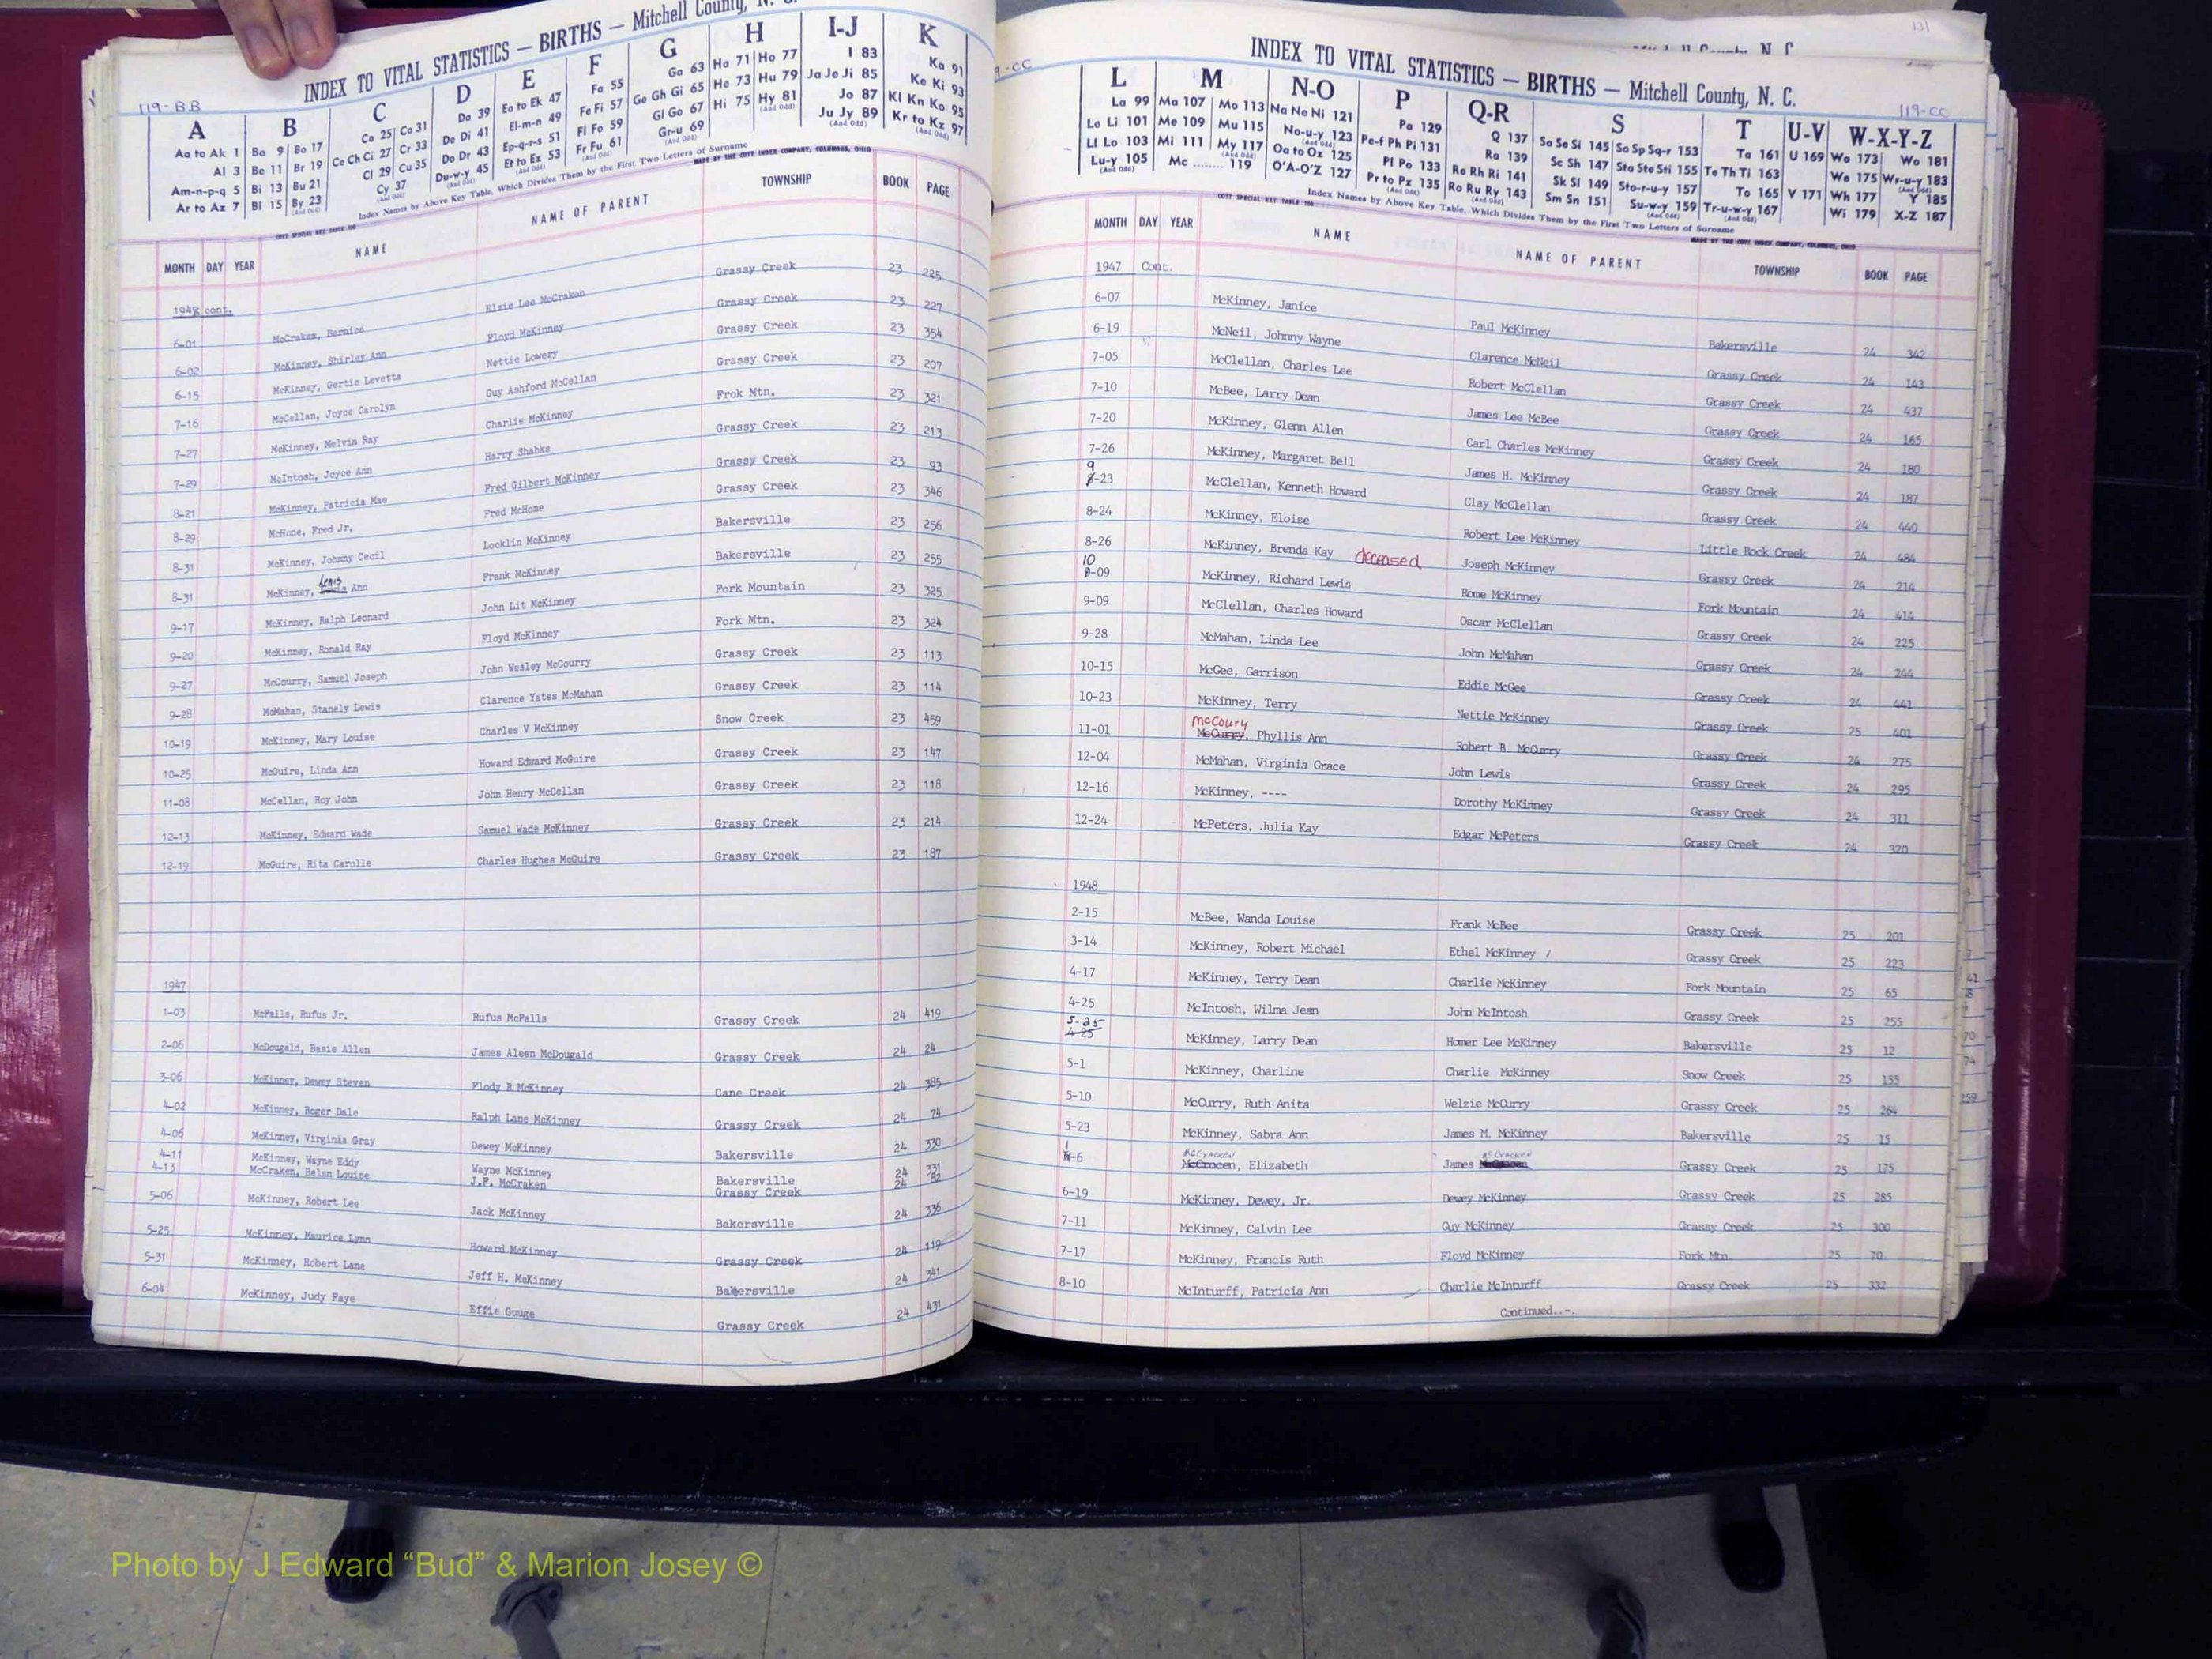 INDEX TO VITAL STATISTICS — BIRTHS — Mitchell County, N. C.
119-BB
A B C D E F G H I-J K
Aa to Ak 1 Ba 9 Bo 17 Ca 25 Co 31 Da 39 Ea to Ek 47 Fa 55 Ga 63 Ha 71 Ho 77 I 83 Ka 91
Al 3 Be 11 Br 19 Ce Ch Ci 27 Cr 33 De Di 41 El-m-n 49 Fe Fi 57 Ge Gh Gi 65 He 73 Hu 79 Ja Je Ji 85 Ke Ki 93
Am-n-p-q 5 Bi 13 Bu 21 Cl 29 Cu 35 Do Dr 43 Ep-q-r-s 51 Fl Fo 59 Gl Go 67 Hi 75 Hy 81 Jo 87 Kl Kn Ko 95
Ar to Az 7 Bl 15 By 23 Cy 37 Du-w-y 45 Et to Ez 53 Fr Fu 61 Gr-u 69 Ju Jy 89 Kr to Kz 97
Index Names by Above Key Table, Which Divides Them by the First Two Letters of Surname
MADE BY THE COTT INDEX COMPANY, COLUMBUS, OHIO
MONTH DAY YEAR NAME NAME OF PARENT TOWNSHIP BOOK PAGE
cont.
6-01 McCraken, Bernice Elzie Lee McCraken Grassy Creek 23 225
6-02 McKinney, Shirley Ann Floyd McKinney Grassy Creek 23 227
6-15 McKinney, Gertie Levetta Nettie Lowery Grassy Creek 23 354
7-16 McCellan, Joyce Carolyn Guy Ashford McCellan Grassy Creek 23 207
7-27 McKinney, Melvin Ray Charlie McKinney Frok Mtn. 23 321
7-29 McIntosh, Joyce Ann Harry Shabks Grassy Creek 23 213
8-21 McKinney, Patricia Mae Fred Gilbert McKinney Grassy Creek 23 93
8-29 McHone, Fred Jr. Fred McHone Grassy Creek 23 346
8-31 McKinney, Johnny Cecil Locklin McKinney Bakersville 23 256
8-31 McKinney, Ann Frank McKinney Bakersville 23 255
9-17 McKinney, Ralph Leonard John Lit McKinney Fork Mountain 23 325
9-20 McKinney, Ronald Ray Floyd McKinney Fork Mtn. 23 324
9-27 McCourry, Samuel Joseph John Wesley McCourry Grassy Creek 23 113
9-28 McMahan, Stanely Lewis Clarence Yates McMahan Grassy Creek 23 114
10-19 McKinney, Mary Louise Charles V McKinney Snow Creek 23 459
10-25 McGuire, Linda Ann Howard Edward McGuire Grassy Creek 23 147
11-08 McCellan, Roy John John Henry McCellan Grassy Creek 23 118
12-13 McKinney, Edward Wade Samuel Wade McKinney Grassy Creek 23 214
12-19 McGuire, Rita Carolle Charles Hughes McGuire Grassy Creek 23 187
1947
1-03 McFalls, Rufus Jr. Rufus McFalls Grassy Creek 24 419
2-06 McDougald, Basie Allen James Aleen McDougald Grassy Creek 24 24
3-06 McKinney, Dewey Steven Flody R McKinney Cane Creek 24 385
4-02 McKinney, Roger Dale Ralph Lane McKinney Grassy Creek 24 74
4-06 McKinney, Virginia Gray Dewey McKinney Bakersville 24 330
4-11 McKinney, Wayne Eddy Wayne McKinney Bakersville 24 331
4-13 McCraken, Helen Louise J.F. McCraken Grassy Creek 24 82
5-06 McKinney, Robert Lee Jack McKinney Bakersville 24 336
5-25 McKinney, Maurice Lynn Howard McKinney Grassy Creek 24 119
5-31 McKinney, Robert Lane Jeff H. McKinney Bakersville 24 341
6-04 McKinney, Judy Faye Effie Gouge Grassy Creek 24 431
131
INDEX TO VITAL STATISTICS — BIRTHS — Mitchell County, N. C.
119-CC
L M N-O P Q-R S T U-V W-X-Y-Z
La 99 Ma 107 Mo 113 Na Ne Ni 121 Pa 129 Q 137 Sa Se Si 145 So Sp Sq-r 153 Ta 161 U 169 Wa 173 Wo 181
Le Li 101 Me 109 Mu 115 No-u-y 123 Pe-f Ph Pi 131 Ra 139 Sc Sh 147 Sta Ste Sti 155 Te Th Ti 163 We 175 Wr-u-y 183
Ll Lo 103 Mi 111 My 117 Oa to Oz 125 Pl Po 133 Re Rh Ri 141 Sk Sl 149 Sto-r-u-y 157 To 165 V 171 Wh 177 Y 185
Lu-y 105 Mc ........ 119 O'A-O'Z 127 Pr to Pz 135 Ro Ru Ry 143 Sm Sn 151 Su-w-y 159 Tr-u-w-y 167 Wi 179 X-Z 187
Index Names by Above Key Table, Which Divides Them by the First Two Letters of Surname
MADE BY THE COTT INDEX COMPANY, COLUMBUS, OHIO
MONTH DAY YEAR NAME NAME OF PARENT TOWNSHIP BOOK PAGE
1947 Cont.
6-07 McKinney, Janice Paul McKinney Bakersville 24 342
6-19 McNeil, Johnny Wayne Clarence McNeil Grassy Creek 24 143
7-05 McClellan, Charles Lee Robert McClellan Grassy Creek 24 437
7-10 McBee, Larry Dean James Lee McBee Grassy Creek 24 165
7-20 McKinney, Glenn Allen Carl Charles McKinney Grassy Creek 24 180
7-26 McKinney, Margaret Bell James H. McKinney Grassy Creek 24 187
9
8-23 McClellan, Kenneth Howard Clay McClellan Grassy Creek 24 440
8-24 McKinney, Eloise Robert Lee McKinney Little Rock Creek 24 484
8-26 McKinney, Brenda Kay deceased Joseph McKinney Grassy Creek 24 214
10
9-09 McKinney, Richard Lewis Rome McKinney Fork Mountain 24 414
9-09 McClellan, Charles Howard Oscar McClellan Grassy Creek 24 225
9-28 McMahan, Linda Lee John McMahan Grassy Creek 24 244
10-15 McGee, Garrison Eddie McGee Grassy Creek 24 441
10-23 McKinney, Terry Nettie McKinney Grassy Creek 25 401
McCoury
11-01 McCurry, Phyllis Ann Robert B. McCurry Grassy Creek 24 275
12-04 McMahan, Virginia Grace John Lewis Grassy Creek 24 295
12-16 McKinney, ---- Dorothy McKinney Grassy Creek 24 311
12-24 McPeters, Julia Kay Edgar McPeters Grassy Creek 24 320
1948
2-15 McBee, Wanda Louise Frank McBee Grassy Creek 25 201
3-14 McKinney, Robert Michael Ethel McKinney Grassy Creek 25 223
4-17 McKinney, Terry Dean Charlie McKinney Fork Mountain 25 65
4-25 McIntosh, Wilma Jean John McIntosh Grassy Creek 25 255
5-25
4-25 McKinney, Larry Dean Homer Lee McKinney Bakersville 25 12
5-1 McKinney, Charline Charlie McKinney Snow Creek 25 155
5-10 McCurry, Ruth Anita Welzie McCurry Grassy Creek 25 264
5-23 McKinney, Sabra Ann James M. McKinney Bakersville 25 15
McCracken McCracken
-6 McCrocen, Elizabeth James Grassy Creek 25 175
6-19 McKinney, Dewey, Jr. Dewey McKinney Grassy Creek 25 285
7-11 McKinney, Calvin Lee Guy McKinney Grassy Creek 25 300
7-17 McKinney, Francis Ruth Floyd McKinney Fork Mtn. 25 70
8-10 McInturff, Patricia Ann Charlie McInturff Grassy Creek 25 332
Continued..-.
Photo by J Edward “Bud” & Marion Josey ©